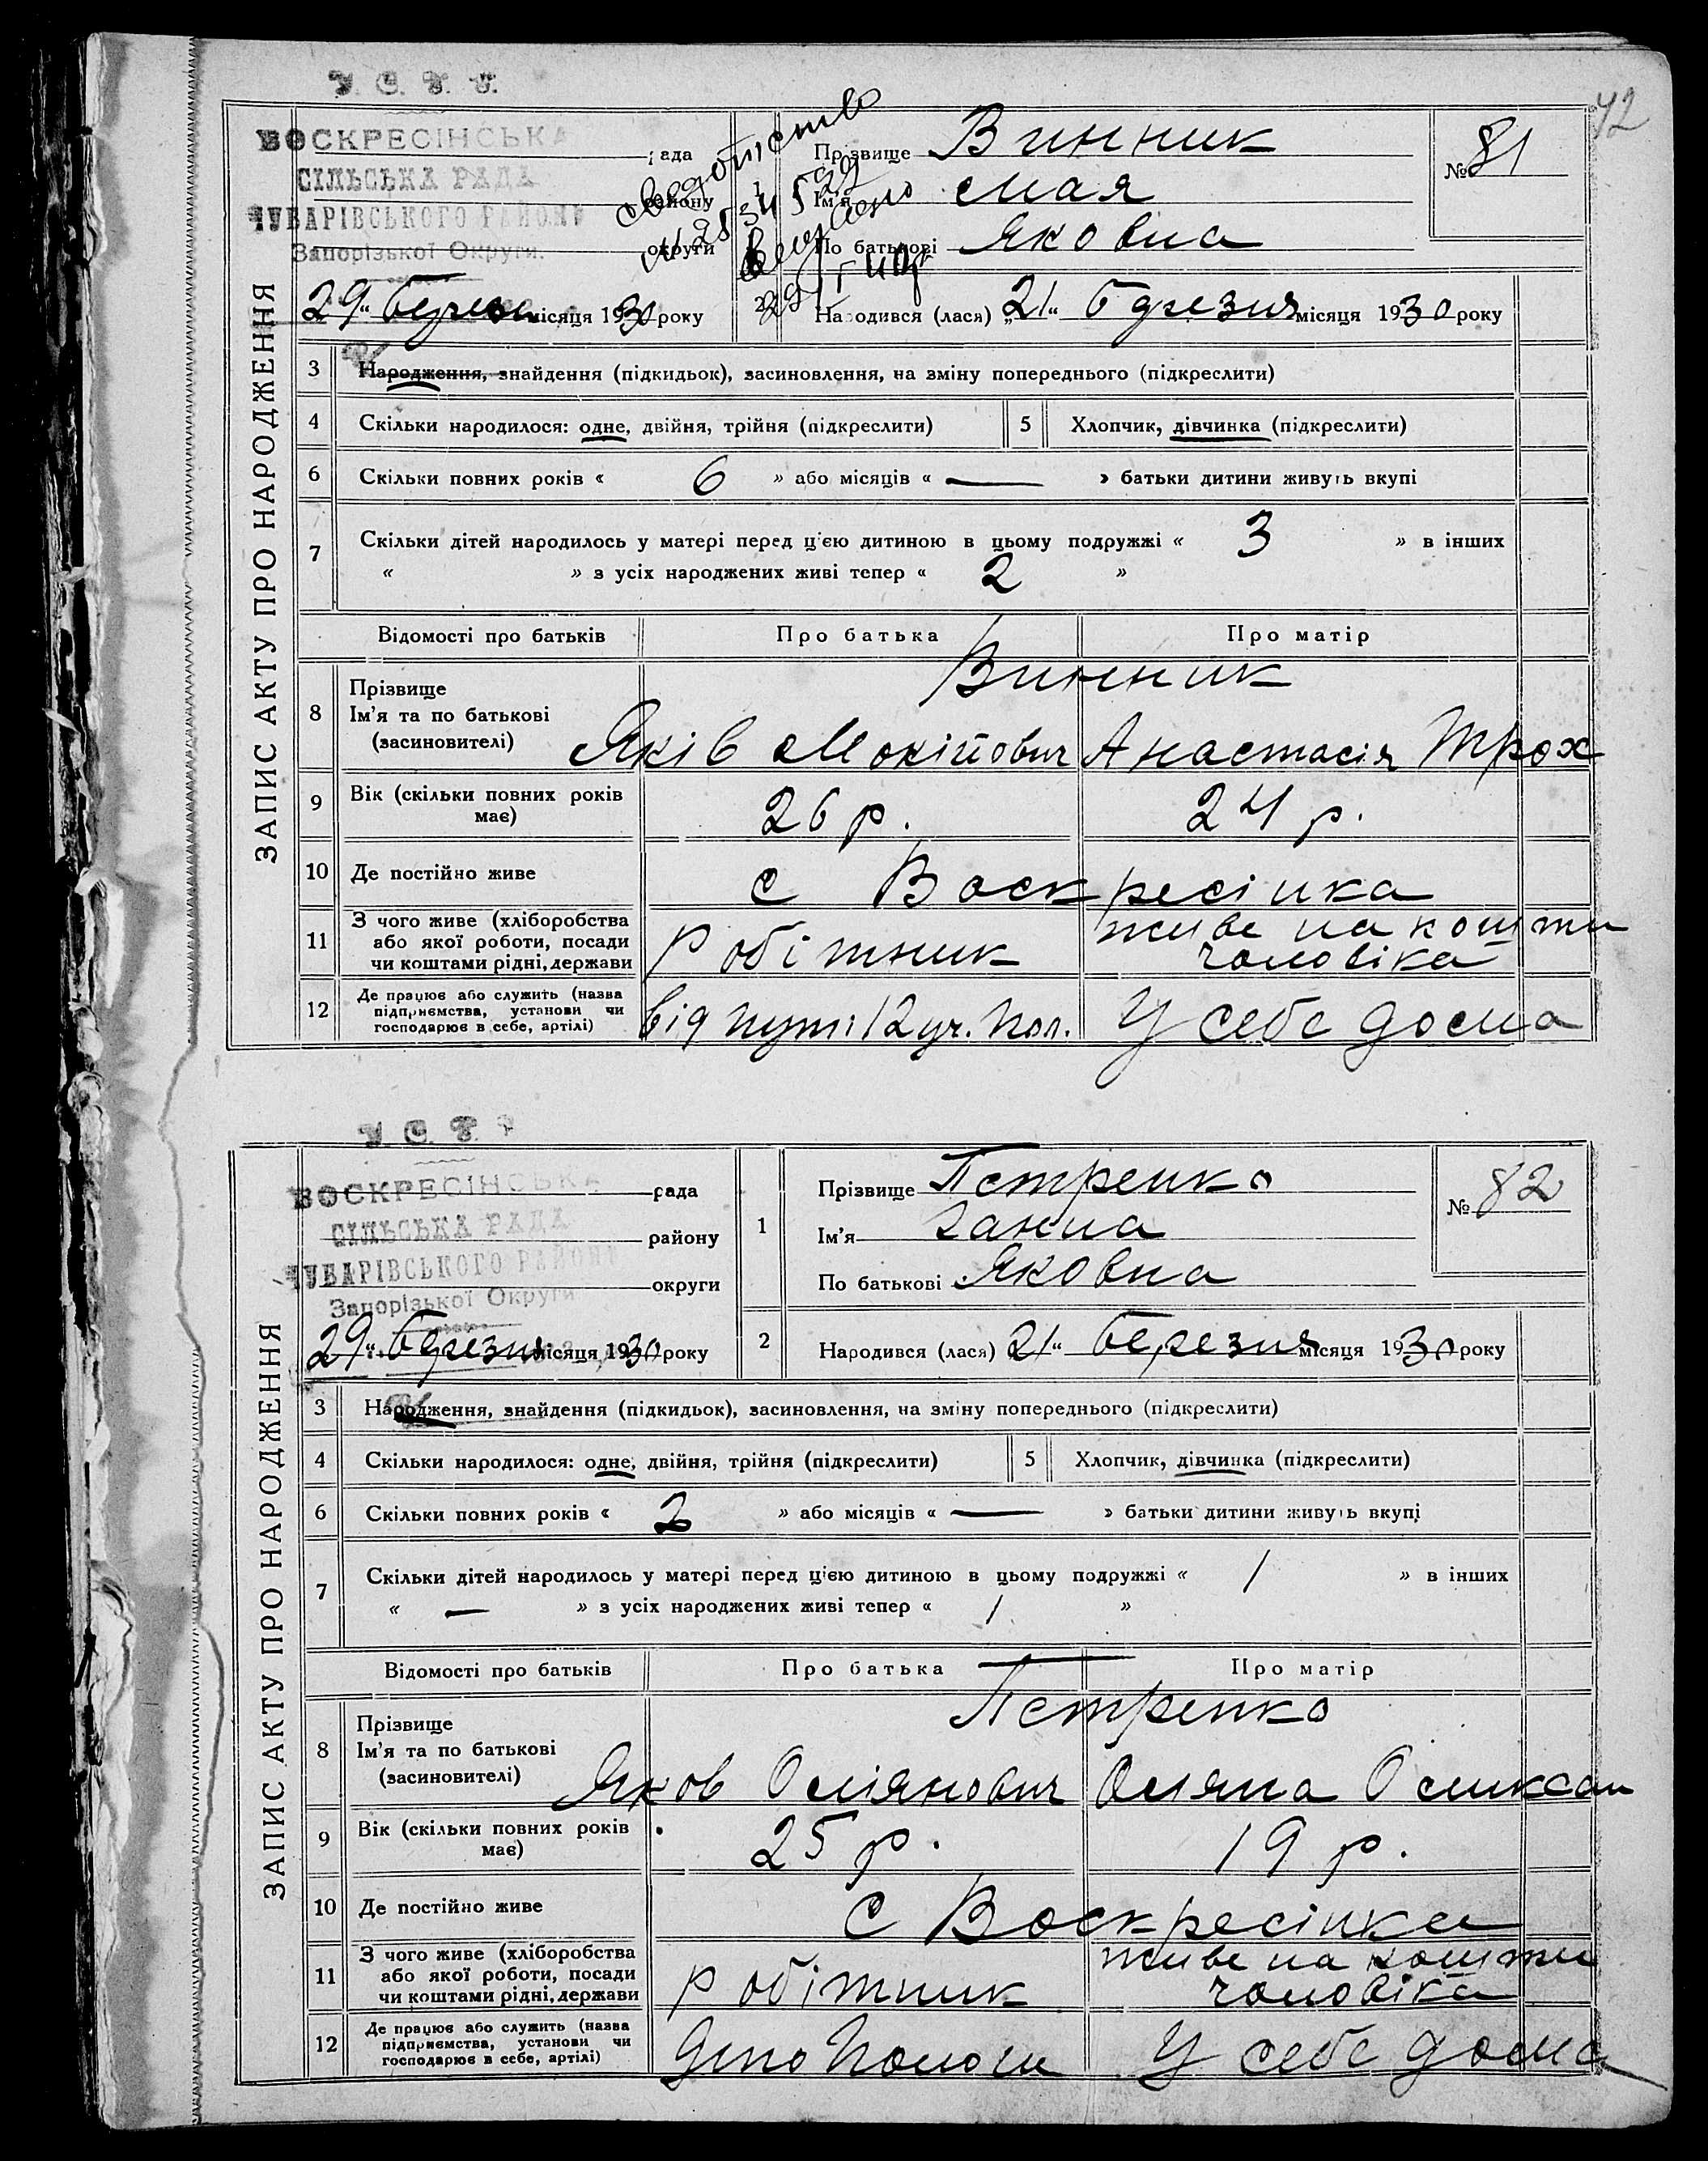 42
У. С. Р. Р.
ВОСКРЕСІНСЬКА рада
СІЛЬСЬКА РАДА
району
ЧУБАРІВСЬКОГО РАЙОНУ
Запорізької Округи. округи
1
Прізвище Винник
Ім'я Мая
По батькові Яковна
№ 81
„29“ березня місяця 1930 року
2
Народився (лася) „21“ березня місяця 1930 року
ЗАПИС АКТУ ПРО НАРОДЖЕННЯ
3 Народження, знайдення (підкидьок), засиновлення, на зміну попереднього (підкреслити)
4 Скільки народилося: одне, двійня, трійня (підкреслити) 5 Хлопчик, дівчинка (підкреслити)
6 Скільки повних років « 6 » або місяців « — » батьки дитини живуть вкупі
7 Скільки дітей народилось у матері перед ц'єю дитиною в цьому подружжі « 3 » в інших
« » з усіх народжених живі тепер « 2 »
Відомості про батьків Про батька Про матір
8 Прізвище Винник
Ім'я та по батькові
(засиновителі) Яків Мокійович Анастасія Трох
9 Вік (скільки повних років
має) 26 р. 24 р.
10 Де постійно живе с Воскресінка
11 З чого живе (хліборобства
або якої роботи, посади
чи коштами рідні, держави робітник живе на кошти
чоловіка
12 Де працює або служить (назва
підприємства, установи чи
господарює в себе, артілі) від путі 12 уч. Пол. У себе дома
У. С. Р. Р.
ВОСКРЕСІНСЬКА рада
СІЛЬСЬКА РАДА
району
ЧУБАРІВСЬКОГО РАЙОНУ
Запорізької Округи округи
1
Прізвище Петренко
Ім'я Ганна
По батькові Яковна
№ 82
„29“ березня місяця 1930 року
2
Народився (лася) „21“ березня місяця 1930 року
ЗАПИС АКТУ ПРО НАРОДЖЕННЯ
3 Народження, знайдення (підкидьок), засиновлення, на зміну попереднього (підкреслити)
4 Скільки народилося: одне, двійня, трійня (підкреслити) 5 Хлопчик, дівчинка (підкреслити)
6 Скільки повних років « 2 » або місяців « — » батьки дитини живуть вкупі
7 Скільки дітей народилось у матері перед ц'єю дитиною в цьому подружжі « 1 » в інших
« — » з усіх народжених живі тепер « 1 »
Відомості про батьків Про батька Про матір
8 Прізвище Петренко
Ім'я та по батькові
(засиновителі) Яков Омілянович Оляна
9 Вік (скільки повних років
має) 25 р. 19 р.
10 Де постійно живе с Воскресінка
11 З чого живе (хліборобства
або якої роботи, посади
чи коштами рідні, держави робітник живе на кошти
чоловіка
12 Де працює або служить (назва
підприємства, установи чи
господарює в себе, артілі) Депо Пологи У себе дома